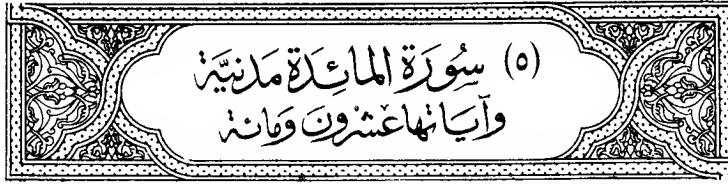 (٥) سُورَة المَائِدَة مَدَنيَّة
وَآيَاتُهَا عِشْرُونَ وَمَائة